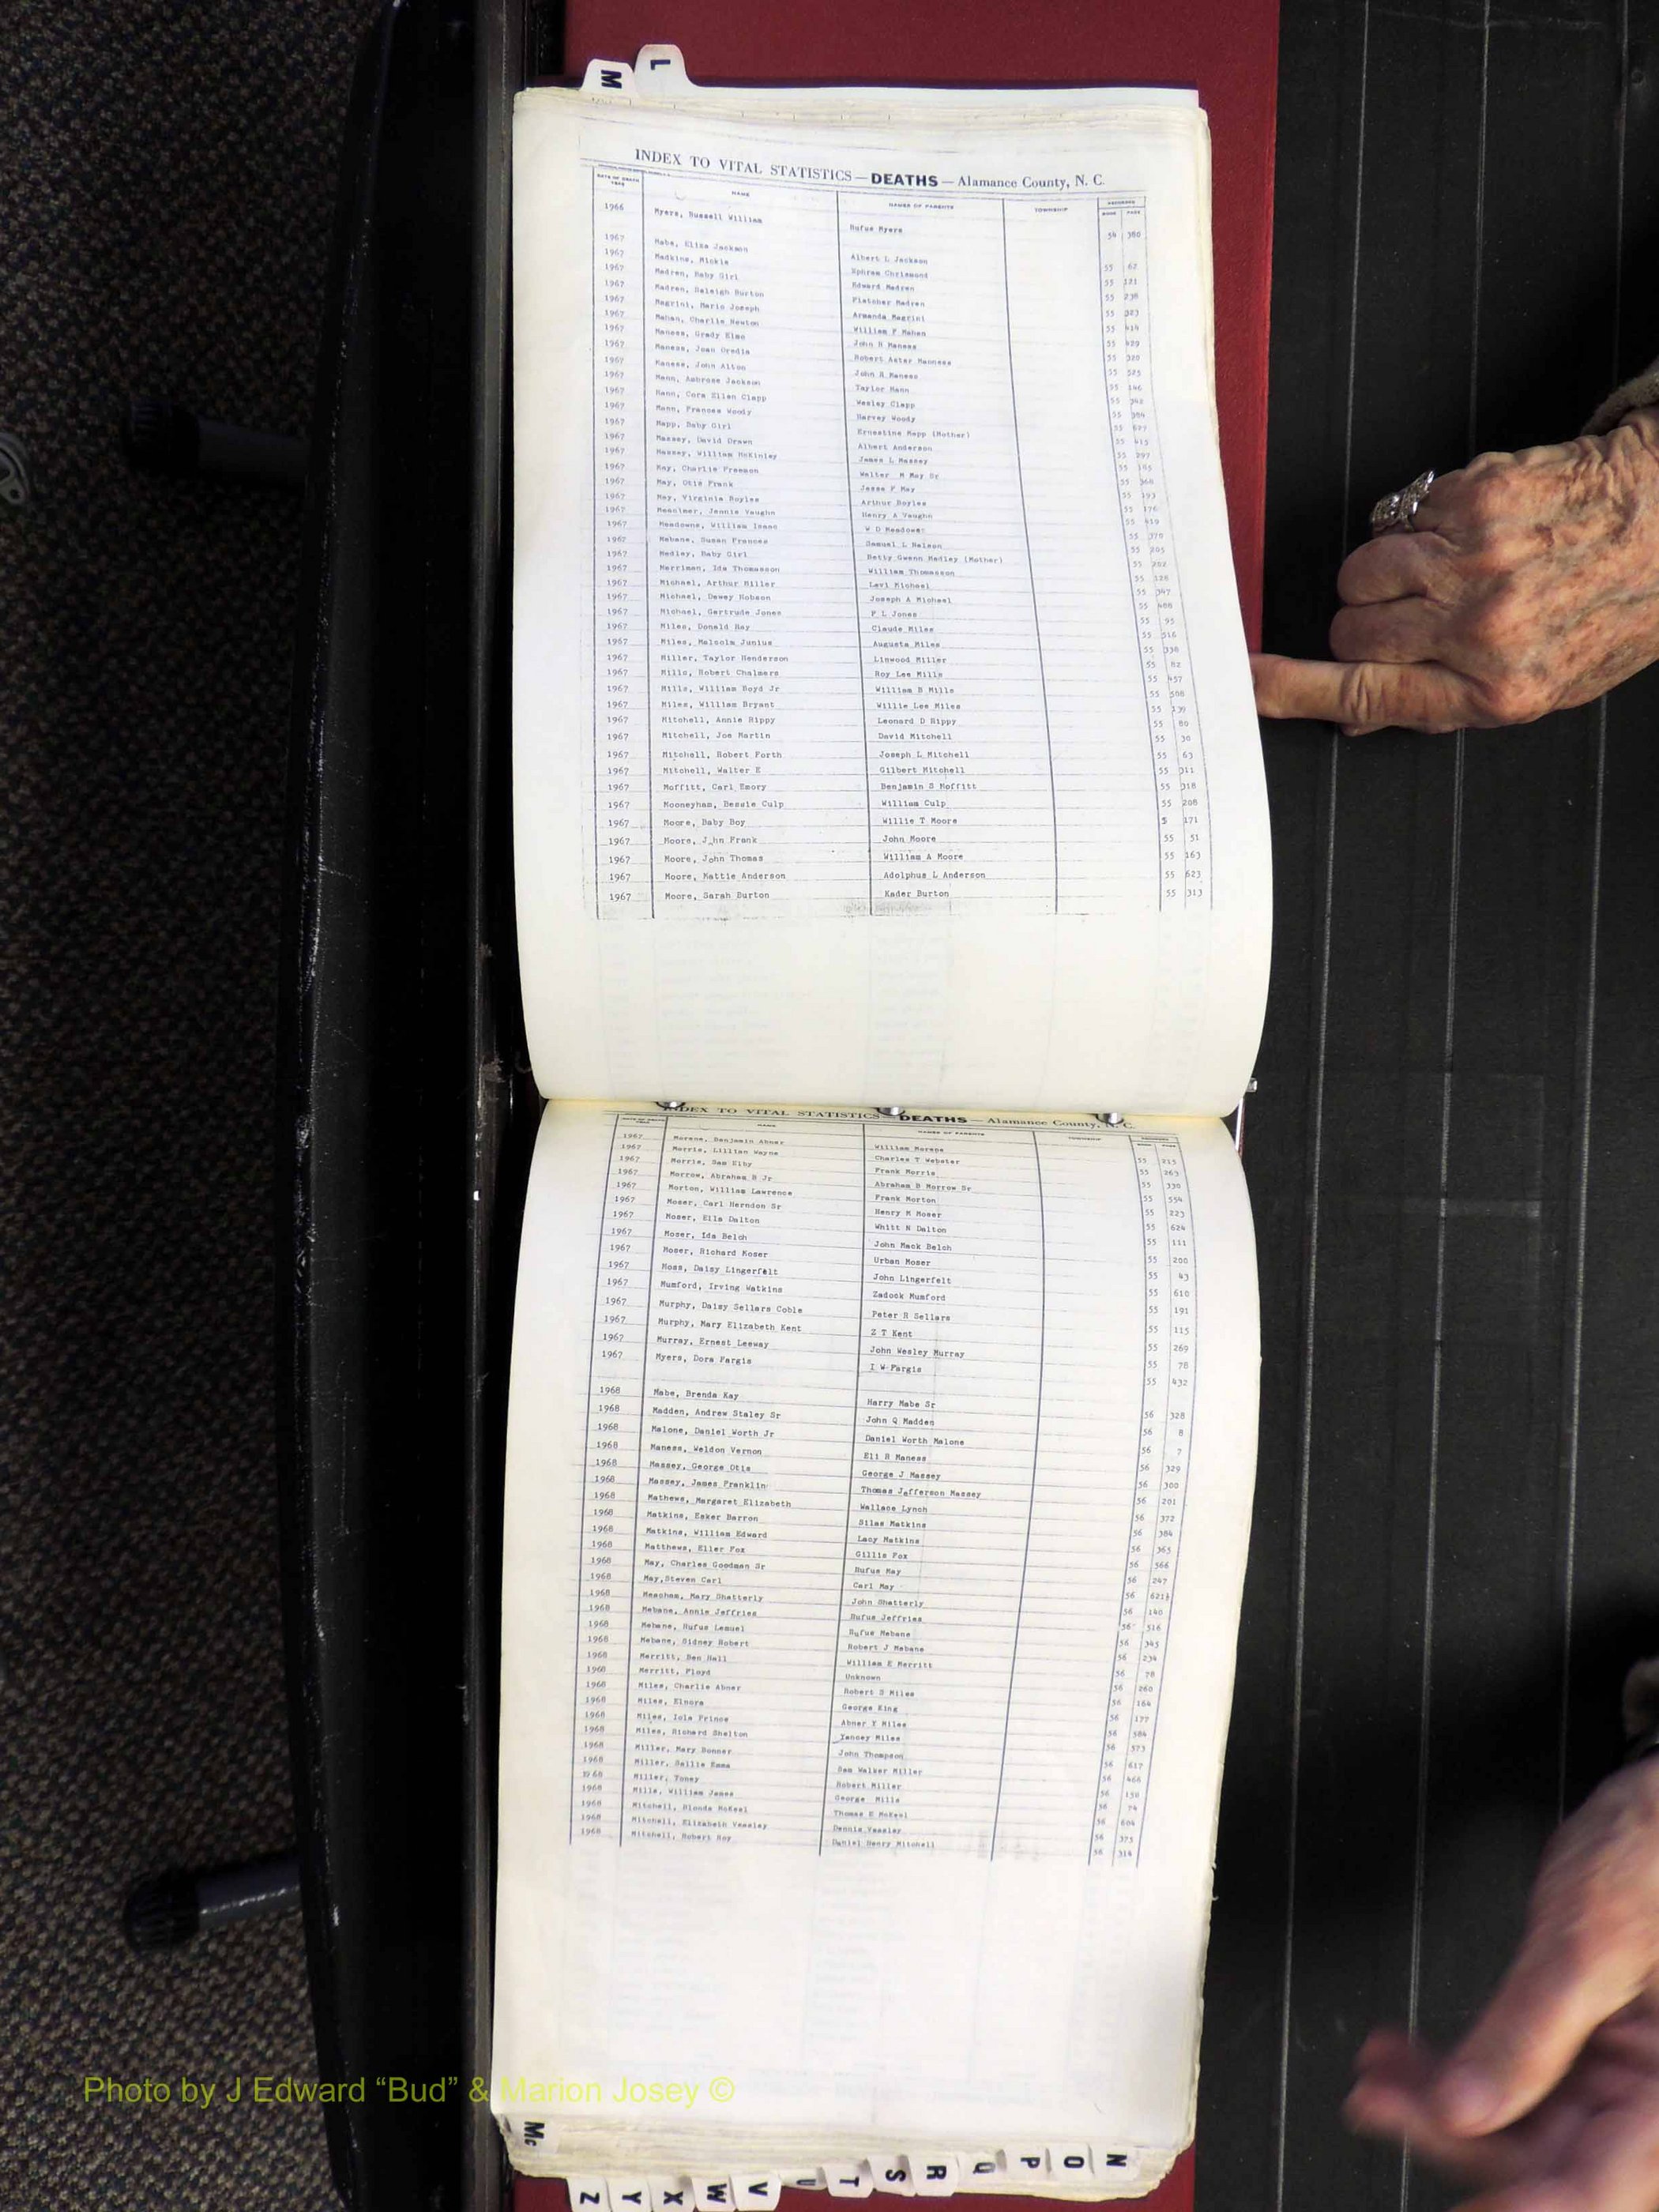 L
M
INDEX TO VITAL STATISTICS — DEATHS — Alamance County, N. C.
DATE OF DEATH YEAR NAME NAMES OF PARENTS TOWNSHIP RECORDED BOOK PAGE
1966 Myers, Russell William Rufus Myers 54 380
1967 Mabe, Eliza Jackson Albert L Jackson 55 62
1967 Madkins, Mickle Ephram Chrismond 55 121
1967 Madren, Baby Girl Edward Madren 55 238
1967 Madren, Raleigh Burton Fletcher Madren 55 323
1967 Magrini, Mario Joseph Armanda Magrini 55 414
1967 Mahan, Charlie Newton William F Mahan 55 429
1967 Maness, Grady Elmo John R Maness 55 320
1967 Maness, Joan Oredia Robert Aster Manness 55 525
1967 Maness, John Alton John R Maness 55 146
1967 Mann, Ambrose Jackson Taylor Mann 55 342
1967 Mann, Cora Ellen Clapp Wesley Clapp 55 384
1967 Mann, Frances Woody Harvey Woody 55 627
1967 Mapp, Baby Girl Ernestine Mapp (Mother) 55 415
1967 Massey, David Drawn Albert Anderson 55 297
1967 Massey, William McKinley James L Massey 55 165
1967 May, Charlie Freemon Walter M May Sr 55 368
1967 May, Otis Frank Jesse F May 55 193
1967 May, Virginia Boyles Arthur Boyles 55 176
1967 Meacimer, Jennie Vaughn Henry A Vaughn 55 419
1967 Meadowns, William Isaac W D Meadows 55 370
1967 Mebane, Susan Frances Samuel L Nelson 55 205
1967 Medley, Baby Girl Betty Gwenn Medley (Mother) 55 202
1967 Merriman, Ida Thomasson William Thomasson 55 128
1967 Michael, Arthur Miller Levi Michael 55 347
1967 Michael, Dewey Hobson Joseph A Michael 55 488
1967 Michael, Gertrude Jones P L Jones 55 95
1967 Miles, Donald Ray Claude Miles 55 516
1967 Miles, Malcolm Junius Augusta Miles 55 338
1967 Miller, Taylor Henderson Linwood Miller 55 82
1967 Mills, Robert Chalmers Roy Lee Mills 55 457
1967 Mills, William Boyd Jr William B Mills 55 508
1967 Miles, William Bryant Willie Lee Miles 55 139
1967 Mitchell, Annie Rippy Leonard D Rippy 55 80
1967 Mitchell, Joe Martin David Mitchell 55 30
1967 Mitchell, Robert Forth Joseph L Mitchell 55 63
1967 Mitchell, Walter E Gilbert Mitchell 55 311
1967 Moffitt, Carl Emory Benjamin S Moffitt 55 318
1967 Mooneyham, Bessie Culp William Culp 55 208
1967 Moore, Baby Boy Willie T Moore 5 171
1967 Moore, John Frank John Moore 55 51
1967 Moore, John Thomas William A Moore 55 163
1967 Moore, Mattie Anderson Adolphus L Anderson 55 623
1967 Moore, Sarah Burton Kader Burton 55 313
INDEX TO VITAL STATISTICS — DEATHS — Alamance County, N. C.
NAME NAMES OF PARENTS TOWNSHIP
1967 Morene, Benjamin Abner William Morene 55 215
1967 Morris, Lillian Wayne Charles T Webster 55 263
1967 Morris, Sam Elby Frank Morris 55 330
1967 Morrow, Abraham B Jr Abraham B Morrow Sr 55 554
1967 Morton, William Lawrence Frank Morton 55 223
1967 Moser, Carl Herndon Sr Henry M Moser 55 624
1967 Moser, Ella Dalton Whitt N Dalton 55 111
1967 Moser, Ida Belch John Mack Belch 55 200
1967 Moser, Richard Koser Urban Moser 55 43
1967 Moss, Daisy Lingerfelt John Lingerfelt 55 610
1967 Mumford, Irving Watkins Zadock Mumford 55 191
1967 Murphy, Daisy Sellars Coble Peter R Sellars 55 115
1967 Murphy, Mary Elizabeth Kent Z T Kent 55 269
1967 Murray, Ernest Leeway John Wesley Murray 55 78
1967 Myers, Dora Fargis I W Fargis 55 432
1968 Mabe, Brenda Kay Harry Mabe Sr 56 328
1968 Madden, Andrew Staley Sr John Q Madden 56 8
1968 Malone, Daniel Worth Jr Daniel Worth Malone 56 7
1968 Maness, Weldon Vernon Eli R Maness 56 329
1968 Massey, George Otis George J Massey 56 300
1968 Massey, James Franklin Thomas Jefferson Massey 56 201
1968 Mathews, Margaret Elizabeth Wallace Lynch 56 372
1968 Matkins, Esker Barron Silas Matkins 56 384
1968 Matkins, William Edward Lacy Matkins 56 365
1968 Matthews, Eller Fox Gillis Fox 56 566
1968 May, Charles Goodman Sr Rufus May 56 247
1968 May,Steven Carl Carl May 56 621½
1968 Meacham, Mary Shatterly John Shatterly 56 140
1968 Mebane, Annie Jeffries Rufus Jeffries 56 516
1968 Mebane, Rufus Lemuel Rufus Mebane 56 345
1968 Mebane, Sidney Robert Robert J Mebane 56 234
1968 Merritt, Ben Hall William E Merritt 56 78
1968 Merritt, Floyd Unknown 56 260
1968 Miles, Charlie Abner Robert S Miles 56 164
1968 Miles, Elnora George King 56 177
1968 Miles, Iola Prince Abner Y Miles 56 584
1968 Miles, Richard Shelton Yancey Miles 56 573
1968 Miller, Mary Bonner John Thompson 56 617
1968 Miller, Sallie Emma Sam Walker Miller 56 466
1968 Miller, Toney Robert Miller 56 150
1968 Mills, William James George Mills 56 74
1968 Mitchell, Blonde McKeel Thomas E McKeel 56 604
1968 Mitchell, Elizabeth Veasley Dennis Veasley 56 375
1968 Mitchell, Robert Roy Daniel Henry Mitchell 56 314
Photo by J Edward “Bud” & Marion Josey ©
Mc
N
O
P
Q
R
S
T
U
V
W
X
Y
Z